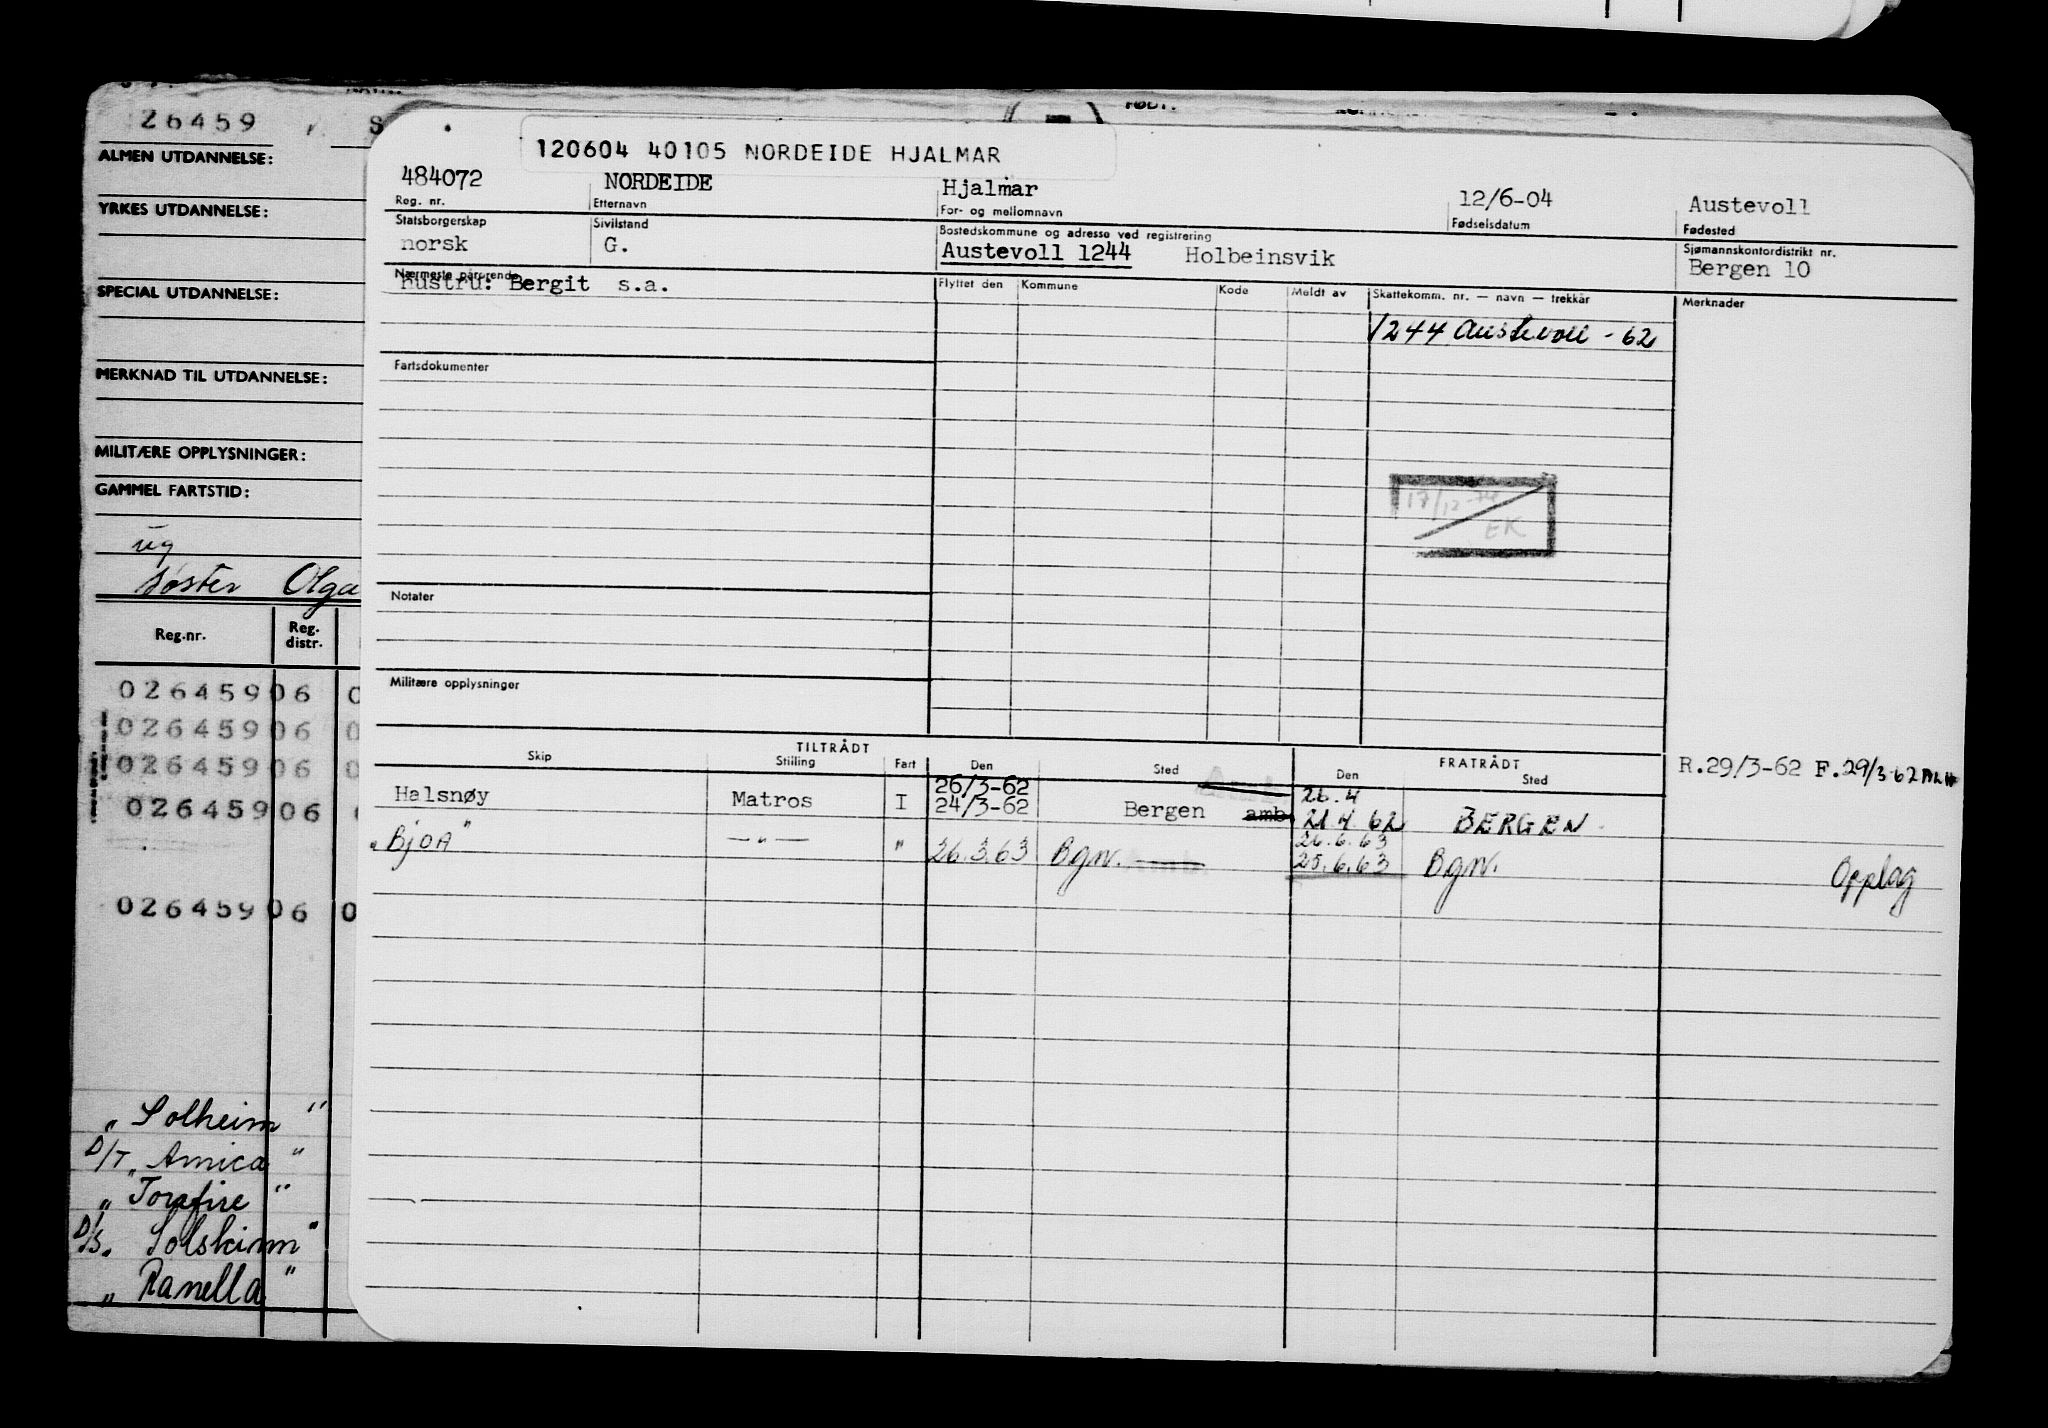 26459
ALMEN UTDANNELSE:
YRKES UTDANNELSE:
SPECIAL UTDANNELSE:
MERKNAD TIL UTDANNELSE:
MILITÆRE OPPLYSNINGER:
GAMMEL FARTSTID:
ug
søster Olga
Reg.nr. Reg. distr.
026459 06 0
026459 06 0
026459 06 0
026459 06
026459 06 0
„ Solheim "
D/T „ Amica "
„ Torafire "
D/S. Solskinn "
„ Ranella "
FØDT:
120604 40105 NORDEIDE HJALMAR
484072 NORDEIDE Hjalmar 12/6-04 Austevoll
Reg. nr. Etternavn For- og mellomnavn Fødselsdatum Fødested
Statsborgerskap Sivilstand Bostedskommune og adresse ved registrering Sjømannskontordistrikt nr.
norsk G. Austevoll 1244 Holbeinsvik Bergen 10
Nærmeste pårørende Flyttet den Kommune Kode Meldt av Skattekomm. nr. — navn — trekkår Merknader
hustru: Bergit s.a.
1244 Austevoll - 62
Fartsdokumenter
17/12-74
EK
Notater
Militære opplysninger
TILTRÅDT FRATRÅDT
Skip Stilling Fart Den Sted Den Sted
R.29/3-62 F.29/3-62
26/3-62 26.4
Halsnøy Matros I 24/3-62 Bergen amb. 21.4.62 BERGEN
26.6.63
„BjoA" — " — " 26.3.63 Bgn. Amb. 25.6.63 Bgn. Opplag